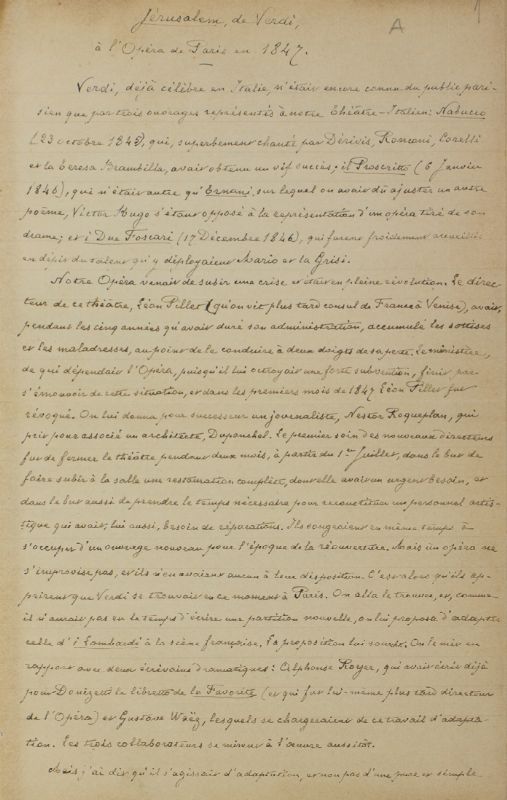 Jérusalem, de Verdi,
A
1
à l'Opéra de Paris en 1847.
Verdi, déjà célèbre en Italie, n'était encore connu du public pari-
sien que par trois ouvrages représentés à notre Théâtre-Italien: Nabucco
(23 octobre 1845), qui, superbement chanté par Dérivis, Ronconi, Corelli
et la Teresa Brambilla, avait obtenu un vif succès; il Proscritto (6 Janvier
1846), qui n'était autre qu'Ernani, sur lequel on avait dû ajuster un autre
poème, Victor Hugo s'étant opposé à la représentation d'un opéra tiré de son
drame; et i Due Foscari (17 Décembre 1846), qui furent froidement accueillis
en dépit du talent qu'y déployaient Mario et la Grisi.
Notre Opéra venait de subir une crise et était en pleine révolution. Le direc-
teur de ce théâtre, Léon Pillet (qu'on vit plus tard consul de France à Venise), avait,
pendant les cinq années qu'avait duré son administration, accumulé les sottises
et les maladresses, au point de le conduire à deux doigts de sa perte. Le ministère,
de qui dépendait l'Opéra, puisqu'il lui octroyait une forte subvention, finit par
s'émouvoir de cette situation, et dans les premiers mois de 1847 Léon Pillet fut
révoqué. On lui donna pour successeur un journaliste, Nestor Roqueplan, qui
prit pour associé un architecte, Duponchel. Le premier soin des nouveaux directeurs
fut de fermer le théâtre pendant deux mois, à partir du 1er Juillet, dans le but de
faire subir à la salle une restauration complète, dont elle avait un urgent besoin, et
dans le but aussi de prendre le temps nécessaire pour reconstituer un personnel artis-
tique qui avait, lui aussi, besoin de réparations. Ils songeaient en même temps à
s'occuper d'un ouvrage nouveau pour l'époque de la réouverture. Mais un opéra ne
s'improvise pas, et ils n'en avaient aucun à leur disposition. C'est alors qu'ils ap-
prirent que Verdi se trouvait en ce moment à Paris. On alla le trouver, et, comme
il n'aurait pas eu le temps d'écrire une partition nouvelle, on lui proposa d'adapter
celle d'i Lombardi à la scène française. La proposition lui sourit. On le mit en
rapport avec deux écrivains dramatiques: Alphonse Royer, qui avait écrit déjà
pour Donizetti le libretto de la Favorite (et qui fut lui-même plus tard directeur
de l'Opéra) et Gustave Waëz, lesquels se chargeaient de ce travail d'adapta-
tion. Les trois collaborateurs se mirent à l'œuvre aussitôt.
Mais j'ai dit qu'il s'agissait d'adaptation, et non pas d'une pure et simple